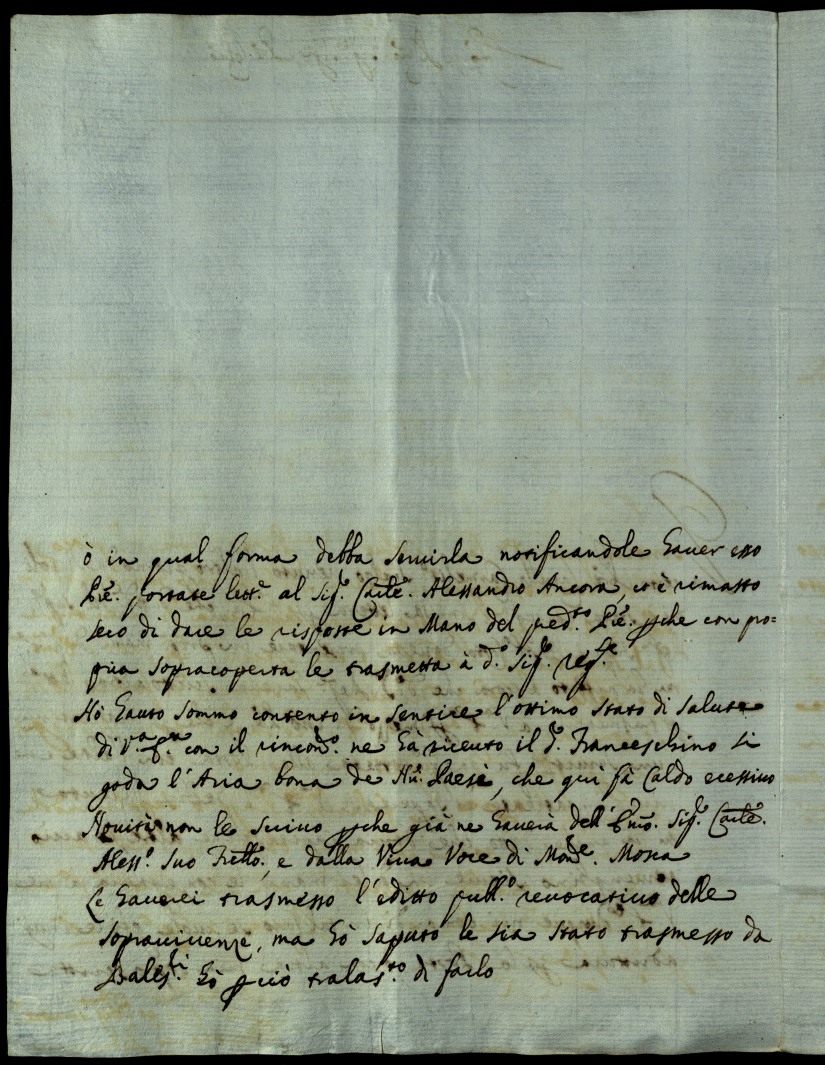 ò in qual forma debba servirla notificandole haver esso
Pre. portate lett.e al Sig.r Carle. Alessandro Ancora, et è rimasto
seco di dare le risposte in Mano del pred.to Pre. perche con pro=
pria sopracoperta le trasmetta à d.o Sig.r
Hò hauto sommo contento in sentire l'ottimo stato di salute
di V.a con il rincon.o ne hà riceuto il Franceschino si
goda l'Aria bona de Paesi, che qui fà Caldo ecessivo
Novità non le scrivo perche già ne haverà dell' Emo. Sig.r Carle.
Aless.o suo Frello., e dalla Viva Voce di Mons.e Mosca
Le haverei trasmesso l'editto publ.o revocativo delle
sopravivenze, ma hò saputo le sia stato trasmesso da
hò perciò tralas.to di farlo